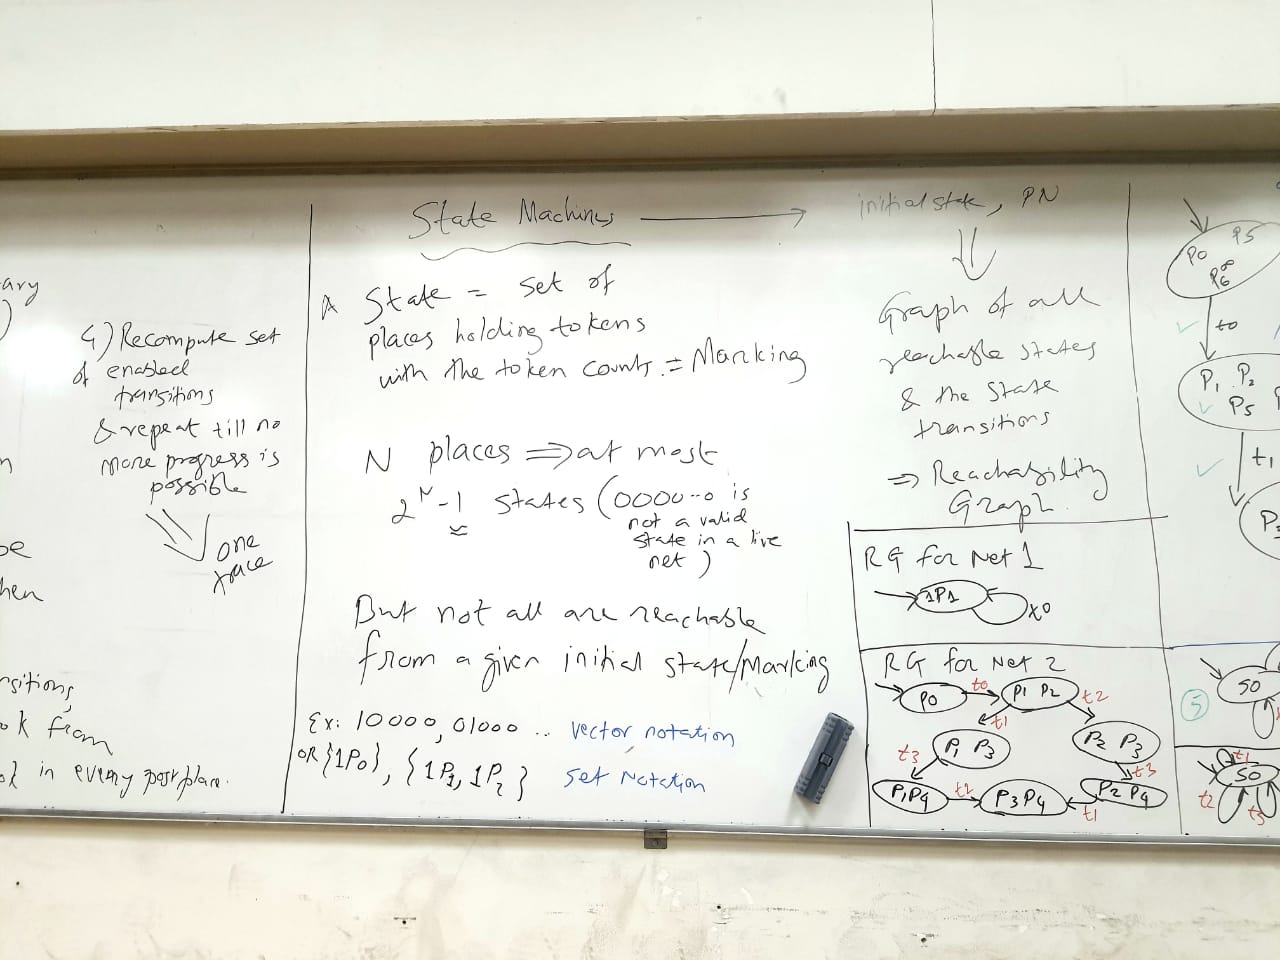 ary
)
4) Recompute set
of enabled
transitions
& repeat till no
more progress is
possible
one
trace
n
be
hen
sitions,
ok from
0} in every postplace.
State Machines
A State = set of
places holding tokens
with the token counts. = Marking
N places ⇒ at most
2^N - 1 states (0000--0 is
not a valid
state in a live
net)
But not all are reachable
from a given initial state/Marking
Ex: 10000, 01000 .. vector notation
OR {1P0}, {1P1, 1P2} set Notation
initial state, PN
Graph of all
reachable states
& the state
transitions
⇒ Reachability
Graph.
RG for Net 1
1P1
x0
RG for Net 2
P0
t0
P1 P2
t2
t1
P1 P3
P2 P3
t3
t3
P1P4
t2
P3 P4
P2 P4
t1
P0 P5
P6^∞
t0
P1 P2
P5
t1
P3
5
S0
t1
S0
t2
t3